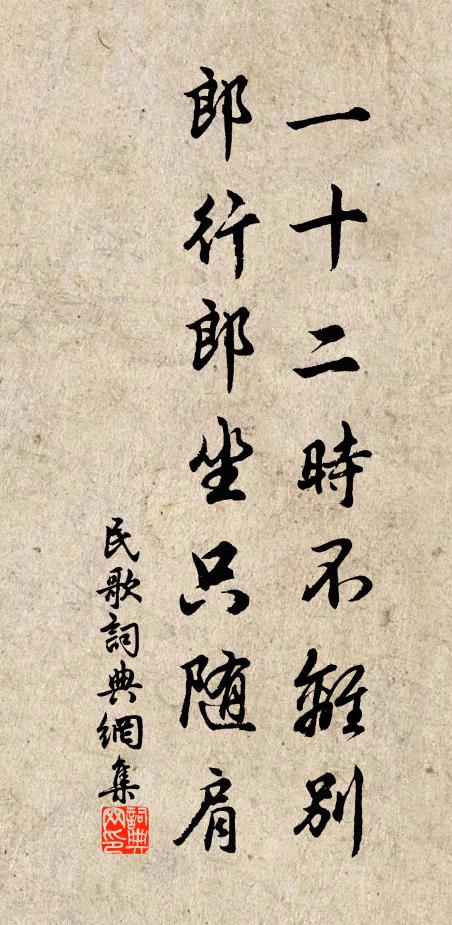 一十二時不離別
郎行郎坐只随肩
民歌詞典網集
詞典網印